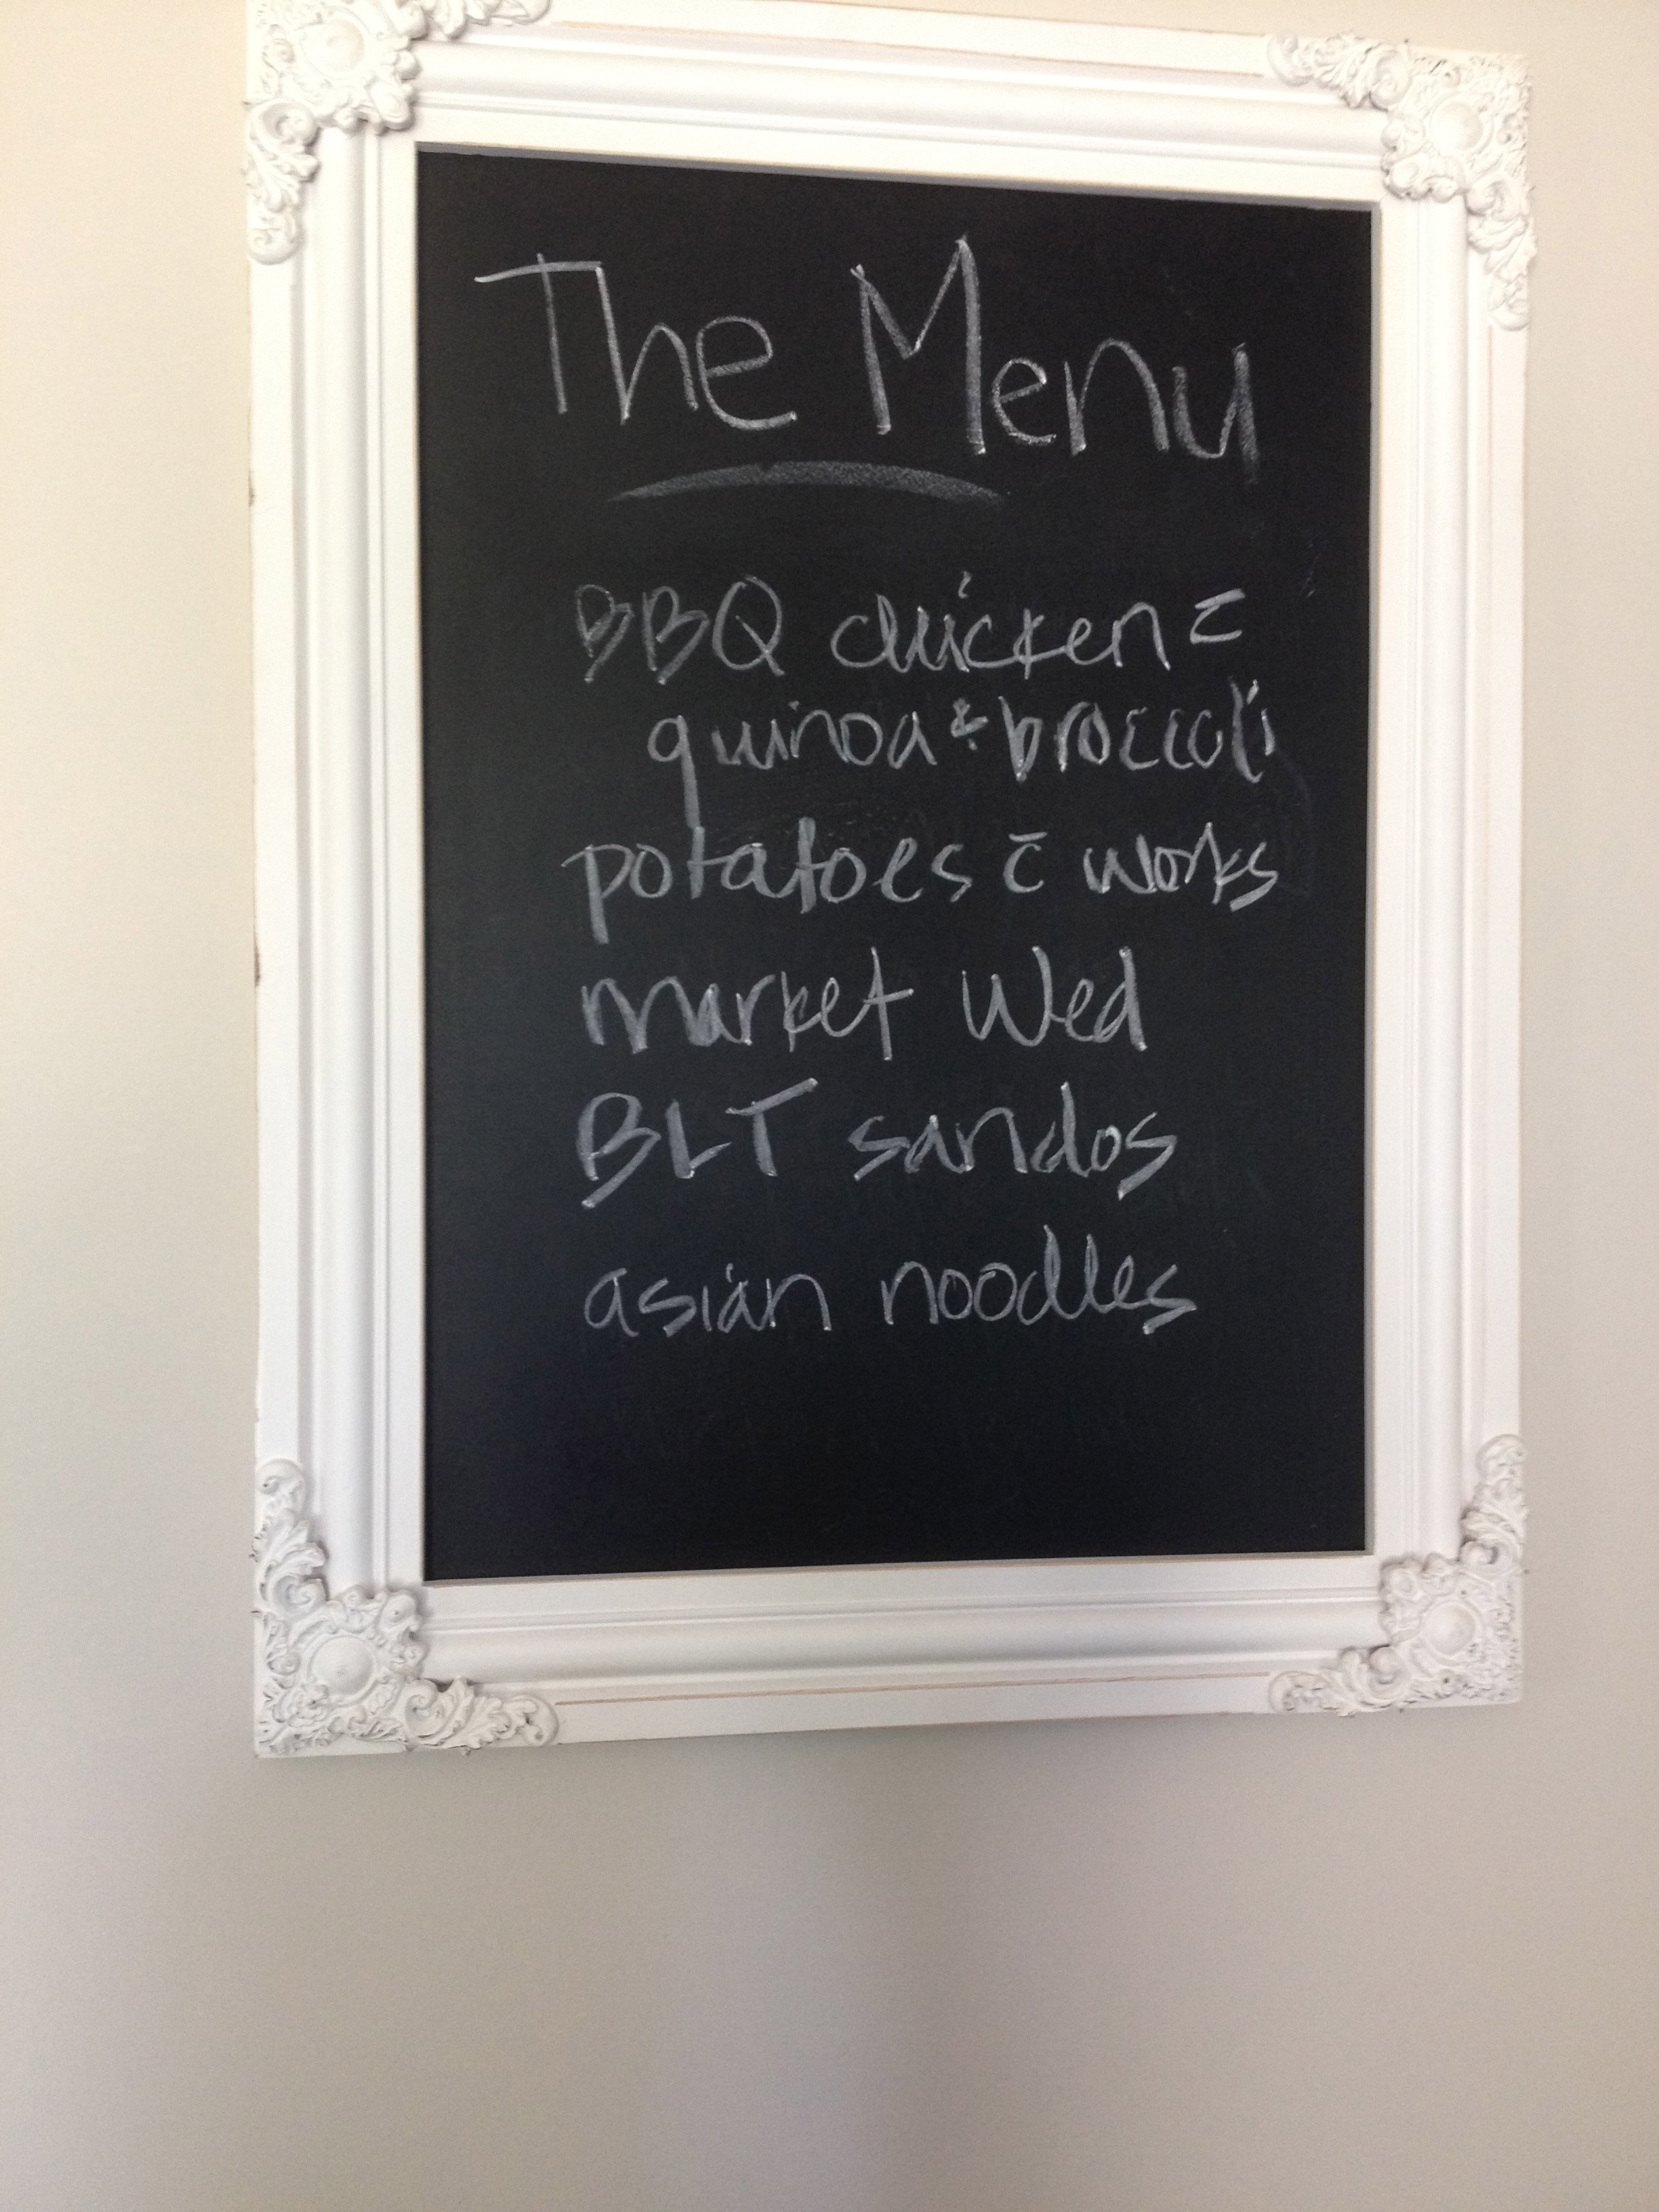 The Menu
BBQ chicken c̄
quinoa & broccoli
potatoes c̄ works
market Wed
BLT sandos
asian noodles